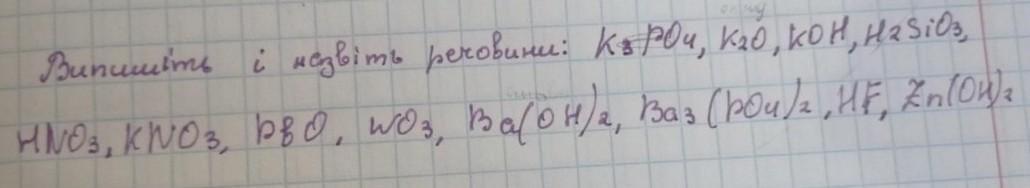 Випишіть і назвіть речовини: K3PO4, K2O, KOH, H2SiO3,
HNO3, KNO3, PbO, WO3, Ba(OH)2, Ba3(PO4)2, HF, Zn(OH)2